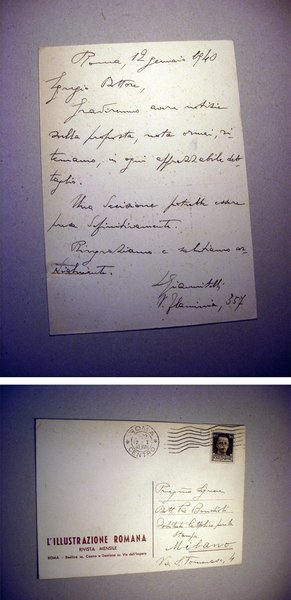 Roma, 12 gennaio 1940
Egregio Dottore,
Gradiremmo avere notizie
sulla proposta, nota ormai, ri-
teniamo, in ogni apprezzabile det-
taglio.
Una decisione potrebbe essere
presa definitivamente.
Ringraziamo e salutiamo co-
rdialmente.
Giannitelli
V. Flaminia, 357
ROMA
CENTRO
L'ILLUSTRAZIONE ROMANA
RIVISTA MENSILE
ROMA - Basilica ss. Cosma e Damiano su Via dell'Impero
Pregiatissimo Signore
Dott. Pio Bondioli
Istituto Cattolico per la
Stampa
Milano
Via S. Tommaso, 4